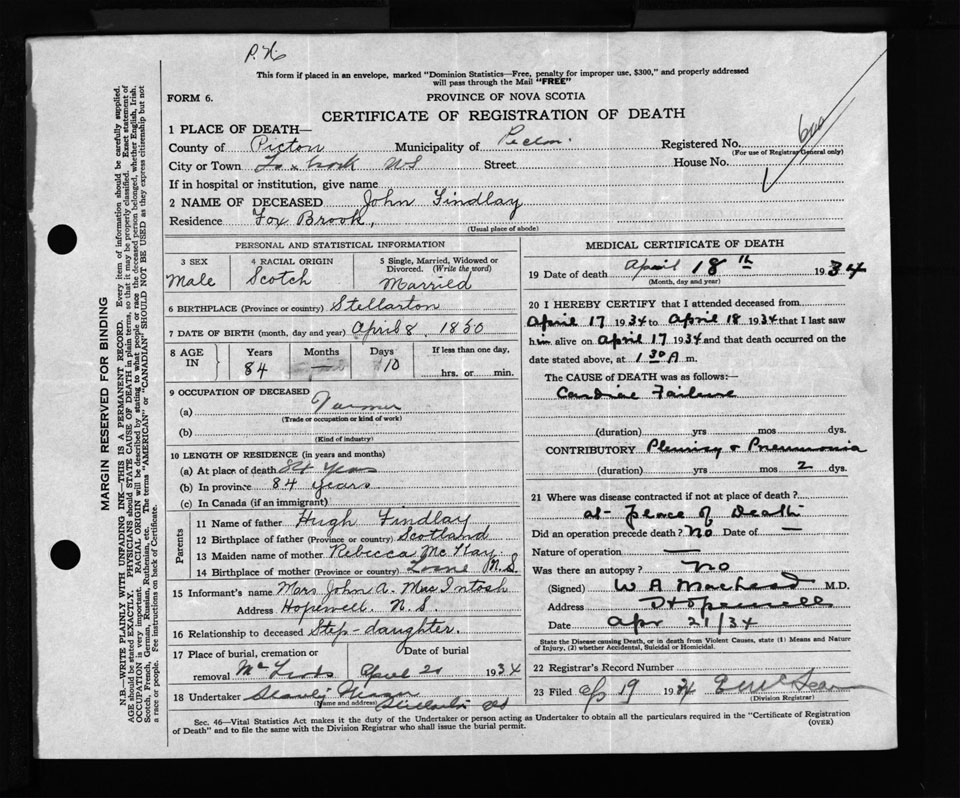 This form if placed in an envelope, marked "Dominion Statistics—Free, penalty for improper use, $300," and properly addressed
will pass through the Mail "FREE"
FORM 6.
PROVINCE OF NOVA SCOTIA
CERTIFICATE OF REGISTRATION OF DEATH
1 PLACE OF DEATH—
County of Pictou Municipality of Pictou Registered No.
(For use of Registrar General only)
City or Town Fox brook NS Street House No.
If in hospital or institution, give name
2 NAME OF DECEASED John Findlay
Residence Fox Brook,
(Usual place of abode)
PERSONAL AND STATISTICAL INFORMATION
3 SEX
Male
4 RACIAL ORIGIN
Scotch
5 Single, Married, Widowed or
Divorced. (Write the word)
Married
6 BIRTHPLACE (Province or country) Stellarton
7 DATE OF BIRTH (month, day and year) April 8, 1850
8 AGE IN
Years Months Days If less than one day,
84 — 10 hrs. or min.
9 OCCUPATION OF DECEASED
(a) Farmer
(Trade or occupation or kind of work)
(b)
(Kind of industry)
10 LENGTH OF RESIDENCE (in years and months)
(a) At place of death 84 years
(b) In province 84 years
(c) In Canada (if an immigrant)
Parents
11 Name of father Hugh Findlay
12 Birthplace of father (Province or country) Scotland
13 Maiden name of mother Rebecca McKay
14 Birthplace of mother (Province or country) Lorne N.S.
15 Informant's name Mrs John A. MacIntosh
Address Hopewell N.S.
16 Relationship to deceased Step-daughter.
17 Place of burial, cremation or Date of burial
removal McLeods April 20 1934
18 Undertaker
(Name and address) Stellarton NS
MEDICAL CERTIFICATE OF DEATH
19 Date of death April 18th 1934
(Month, day and year)
20 I HEREBY CERTIFY that I attended deceased from
April 17 1934 to April 18 1934 that I last saw
him alive on April 17 1934 and that death occurred on the
date stated above, at 1 30 A m.
The CAUSE OF DEATH was as follows:—
Cardiac Failure
(duration) yrs mos dys.
CONTRIBUTORY Pleurisy & Pneumonia
(duration) yrs mos 2 dys.
21 Where was disease contracted if not at place of death?
at place of Death
Did an operation precede death? No Date of —
Nature of operation —
Was there an autopsy? No
(Signed) W A MacLeod M.D.
Address Hopewell
Date Apr 21/34
State the Disease causing Death, or in death from Violent Causes, state (1) Means and Nature
of Injury, (2) whether Accidental, Suicidal or Homicidal.
22 Registrar's Record Number
23 Filed Ap 19 1934
(Division Registrar)
Sec. 46—Vital Statistics Act makes it the duty of the Undertaker or person acting as Undertaker to obtain all the particulars required in the "Certificate of Registration
of Death" and to file the same with the Division Registrar who shall issue the burial permit.
(OVER)
MARGIN RESERVED FOR BINDING
N.B.—WRITE PLAINLY WITH UNFADING INK—THIS IS A PERMANENT RECORD. Every item of information should be carefully supplied.
AGE should be stated EXACTLY. PHYSICIANS should STATE CAUSE OF DEATH in plain terms, so that it may be properly classified. Exact statement of
OCCUPATION is very important. RACIAL ORIGIN will be described by stating to what people or race the deceased person belonged, whether English, Irish,
Scotch, French, German, Russian, Ruthenian, etc. The terms "AMERICAN" or "CANADIAN" SHOULD NOT BE USED as they express citizenship but not
a race or people. See instructions on back of Certificate.